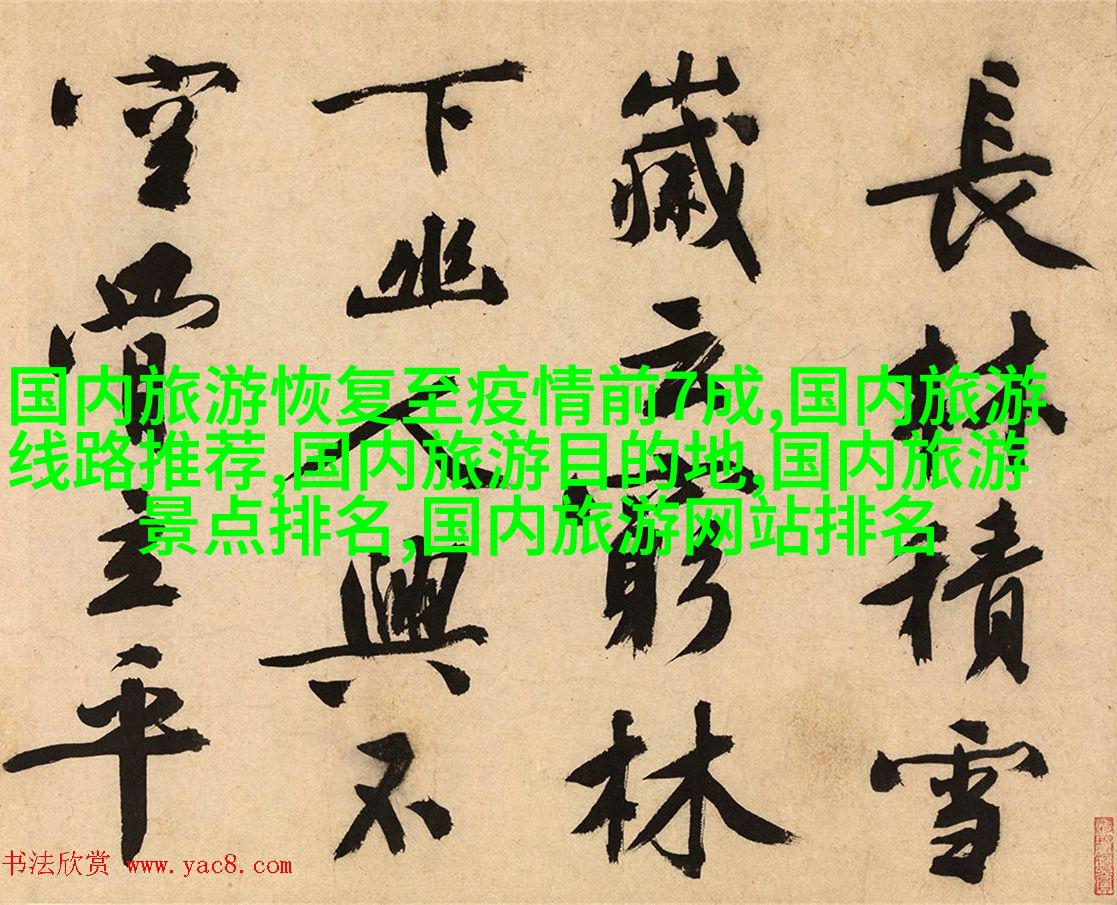 国内旅游恢复至疫情前7成,国内旅游
线路推荐,国内旅游目的地,国内旅游
景点排名,国内旅游网站排名
長林積雪
歲方窮林
下幽人興不
空立平
书法欣赏 www.yac8.com